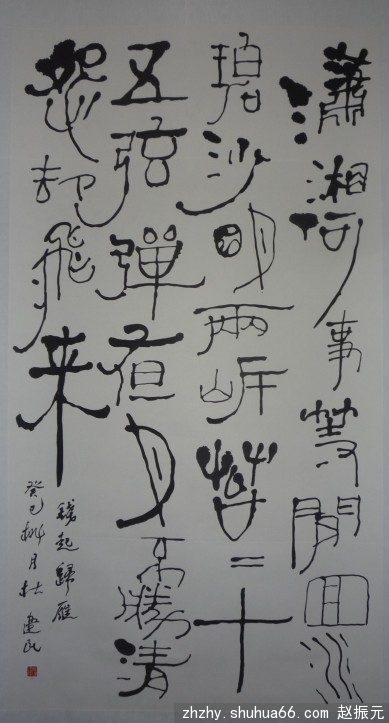 瀟湘何事等閒回水
碧沙明兩岸苔二十
五弦彈夜月不勝清
怨却飛来
錢起歸雁
癸巳桃月杜建民
zhzhy.shuhua66.com 赵振元